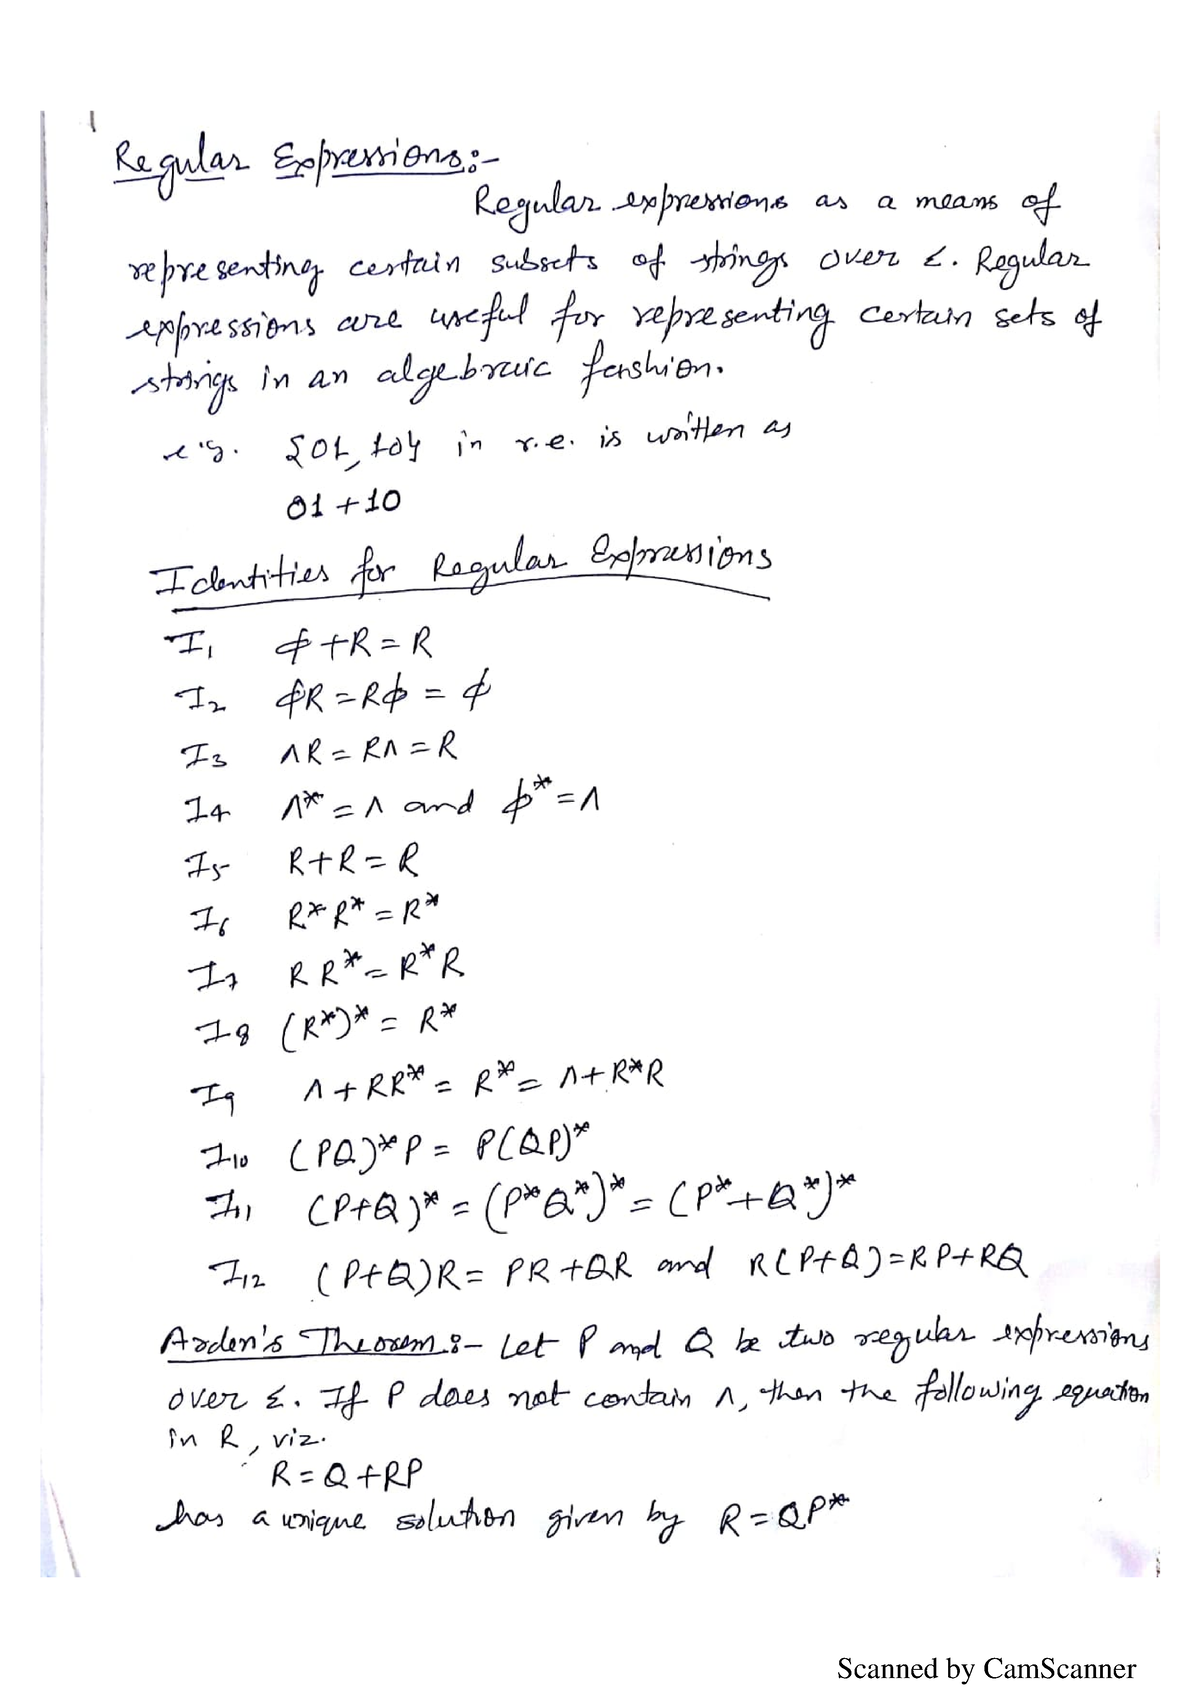 Regular Expressions:-
Regular expressions as a means of
representing certain subsets of strings over Σ. Regular
expressions are useful for representing certain sets of
strings in an algebraic fashion.
e.g. {01, 10} in r.e. is written as
01 + 10
Identities for Regular Expressions
I1 φ + R = R
I2 φR = Rφ = φ
I3 ΛR = RΛ = R
I4 Λ* = Λ and φ* = Λ
I5 R + R = R
I6 R* R* = R*
I7 R R* = R* R
I8 (R*)* = R*
I9 Λ + RR* = R* = Λ + R*R
I10 (PQ)* P = P(QP)*
I11 (P+Q)* = (P* Q*)* = (P* + Q*)*
I12 (P+Q)R = PR + QR and R(P+Q) = RP + RQ
Arden's Theorem:- Let P and Q be two regular expressions
over Σ. If P does not contain Λ, then the following equation
in R, viz.
R = Q + RP
has a unique solution given by R = QP*
Scanned by CamScanner